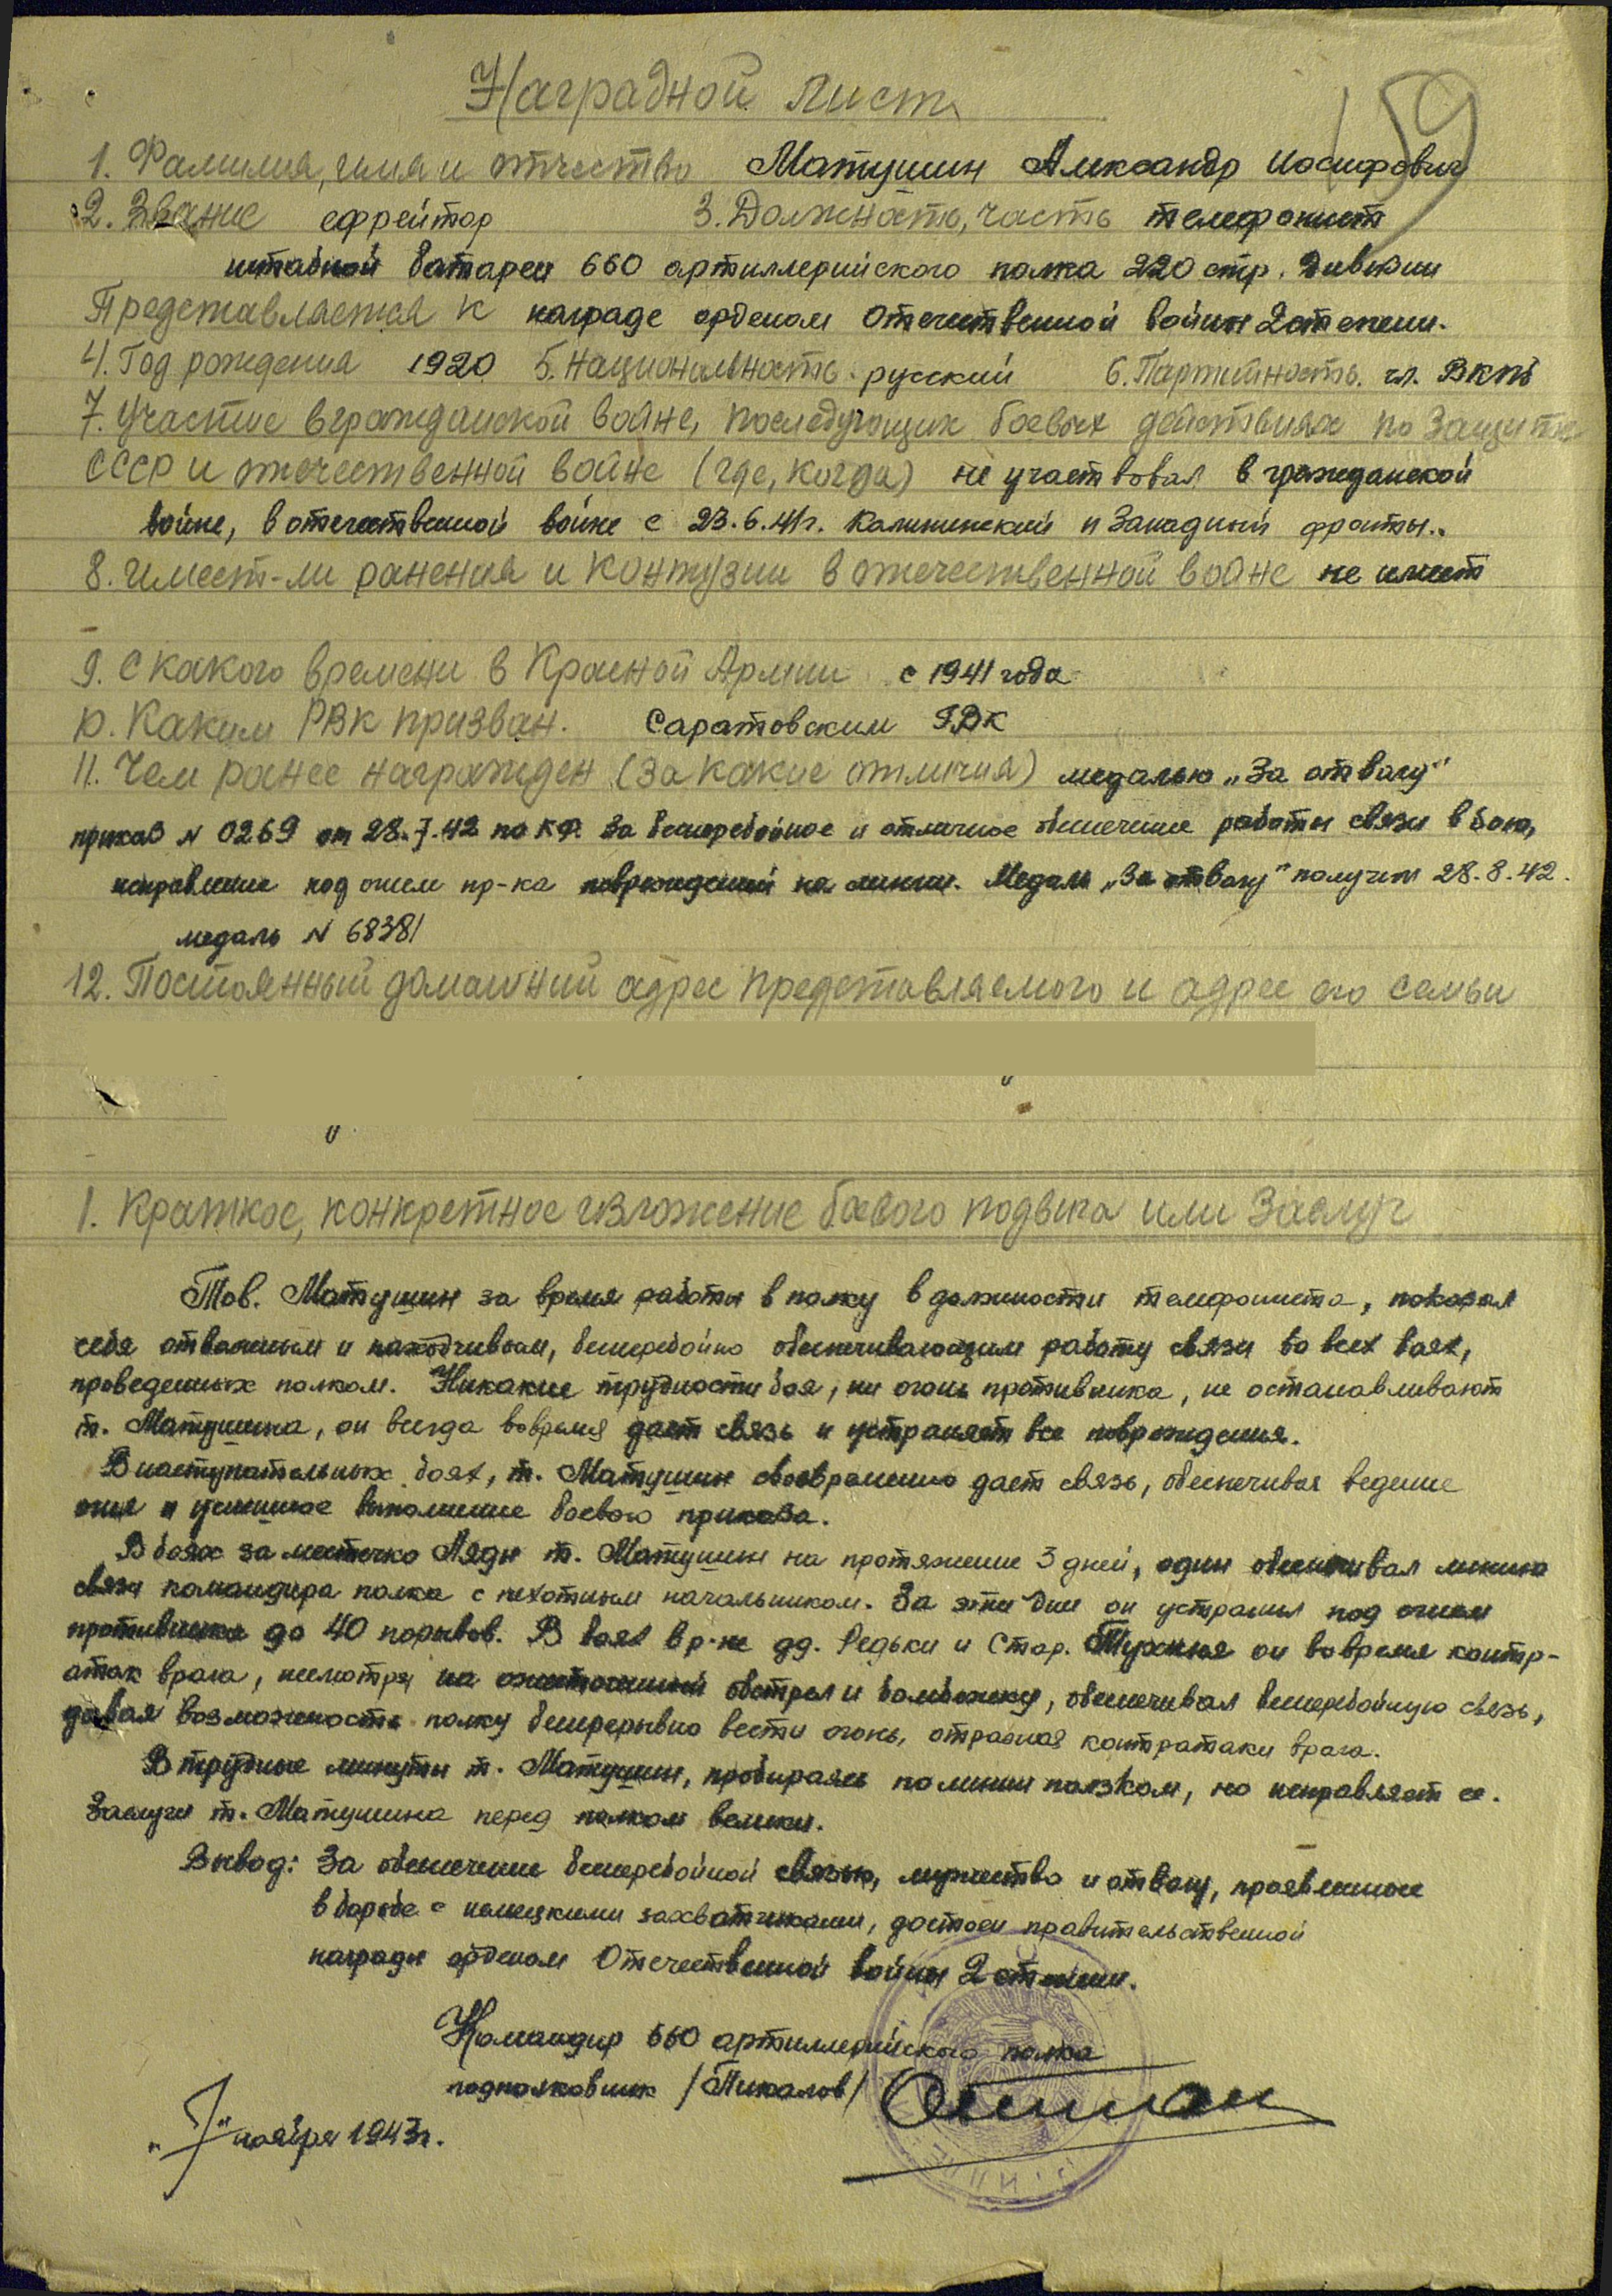 159
Наградной лист
1. Фамилия, имя и отчество Матушин Александр Иосифович
2. Звание ефрейтор 3. Должность, часть телефонист
штабной батареи 660 артиллерийского полка 220 стр. дивизии
Представляется к награде орденом Отечественной войны 2 степени.
4. Год рождения 1920 5. Национальность. русский 6. Партийность. чл. ВКПб
7. Участие в гражданской войне, последующих боевых действиях по защите
СССР и отечественной войне (где, когда) не участвовал в гражданской
войне, в отечественной войне с 23.6.41г. Калининский и Западный фронты..
8. Имеет-ли ранения и контузии в отечественной войне не имеет
9. С какого времени в Красной Армии с 1941 года
10. Каким РВК призван. Саратовским ГВК
11. Чем ранее награжден (за какие отличия) медалью „За отвагу"
приказ N 0269 от 28.7.42 по КФ. За бесперебойное и отличное обеспечение работы связи в бою,
исправление под огнем пр-ка повреждений на линии. Медаль „За отвагу" получил 28.8.42.
медаль N 68381
12. Постоянный домашний адрес представляемого и адрес его семьи
1. Краткое, конкретное изложение боевого подвига или заслуг
Тов. Матушин за время работы в полку в должности телефониста, показал
себя отважным и находчивым, бесперебойно обеспечивающим работу связи во всех боях,
проведенных полком. Никакие трудности боя, ни огонь противника, не останавливают
т. Матушина, он всегда вовремя дает связь и устраняет все повреждения.
В наступательных боях, т. Матушин своевременно дает связь, обеспечивая ведение
огня и успешное выполнение боевого приказа.
В боях за местечко Ляды т. Матушин на протяжение 3 дней, один обеспечивал линию
связи командира полка с пехотным начальником. За эти дни он устранил под огнем
противника до 40 порывов. В боях в р-не дд. Редьки и Стар. Тухиня он вовремя контр-
атак врага, несмотря на ожесточенный обстрел и бомбежку, обеспечивал бесперебойную связь,
давая возможность полку беспрерывно вести огонь, отражая контратаки врага.
В трудные минуты т. Матушин, пробираясь по линии ползком, но исправляет ее.
Заслуги т. Матушина перед полком велики.
Вывод: За обеспечение бесперебойной связью, мужество и отвагу, проявленные
в борьбе с немецкими захватчиками, достоен правительственной
награды орденом Отечественной войны 2 степени.
Командир 660 артиллерийского полка
подполковник /Пикалов/
„7" ноября 1943г.